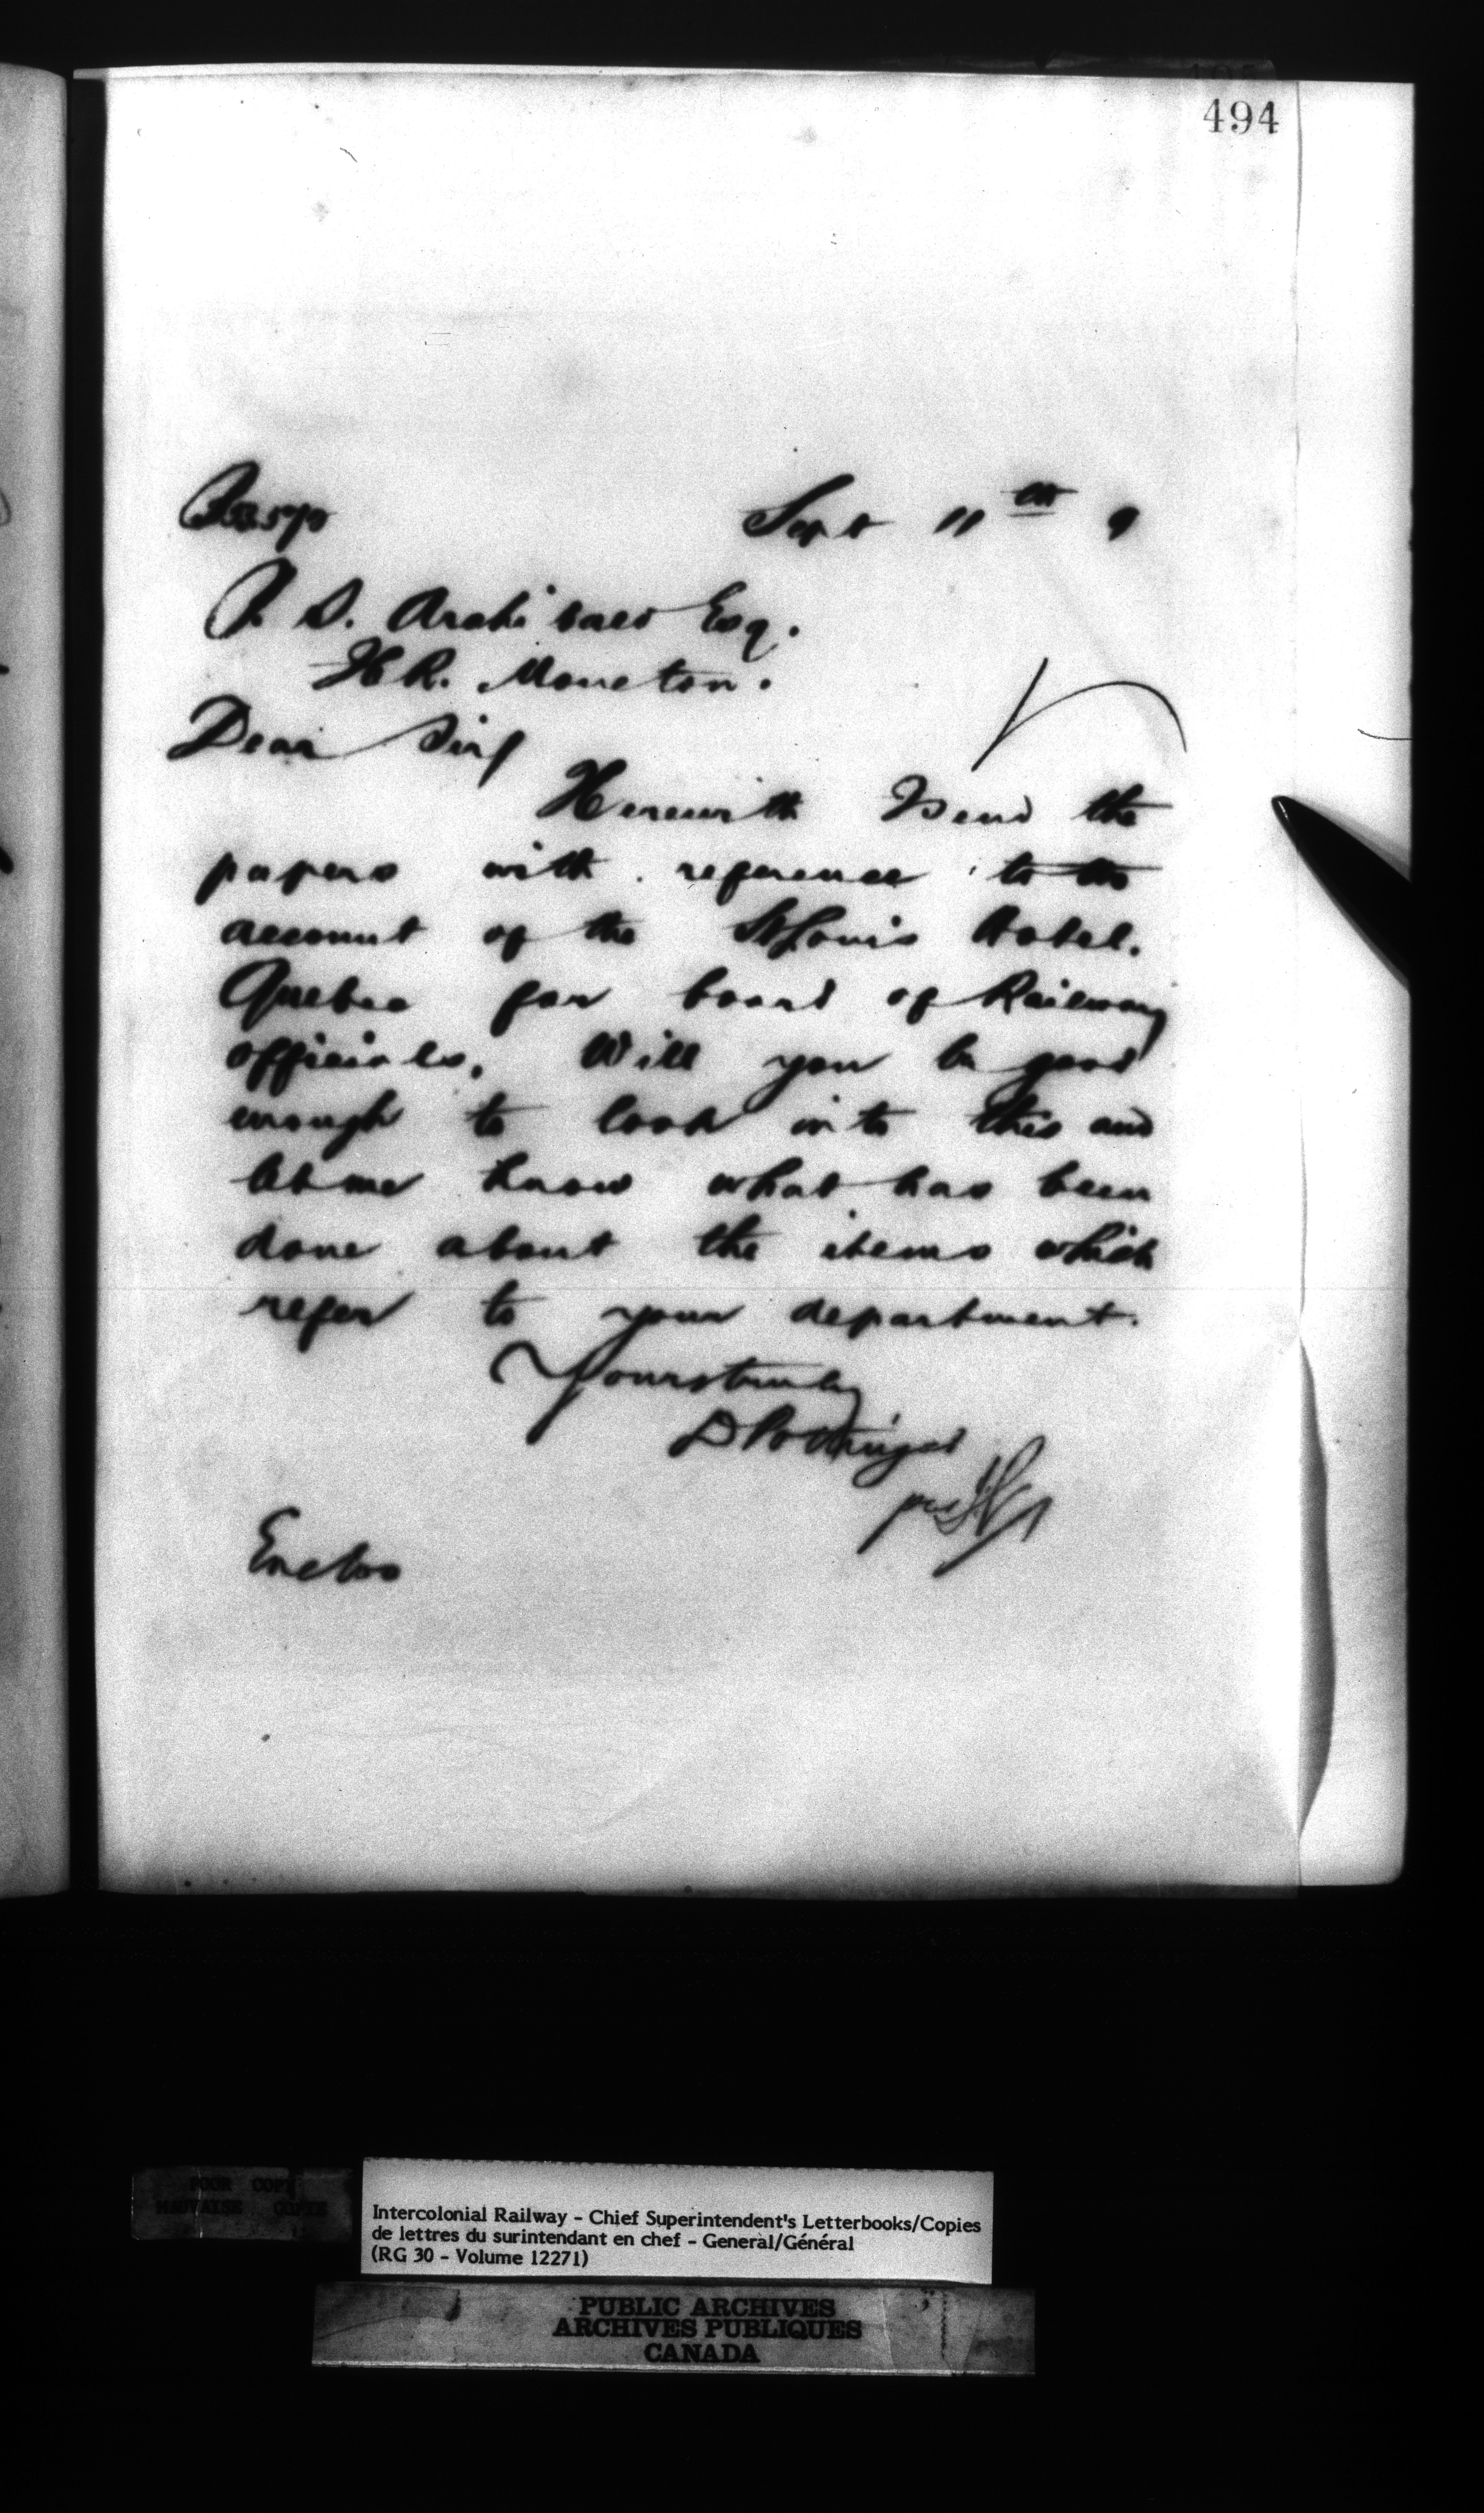 494
Sept 11th 9
P. S. Archibald Esq.
H R. Moncton.
Dear Sir/
Herewith I send the
papers with reference to the
account of the St Louis Hotel.
Quebec for board of Railway
officials. Will you be good
enough to look into this and
let me know what has been
done about the items which
refer to your department.
Yours truly
D Pottinger
per
Enclos
POOR COPY
MAUVAISE COPIE
Intercolonial Railway - Chief Superintendent's Letterbooks/Copies
de lettres du surintendant en chef - General/Général
(RG 30 - Volume 12271)
PUBLIC ARCHIVES
ARCHIVES PUBLIQUES
CANADA